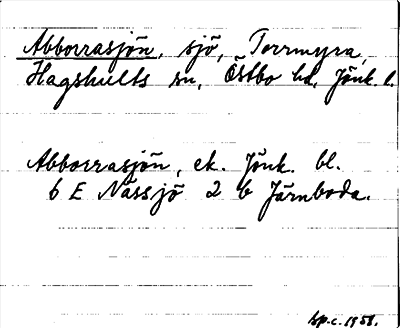 Abborrasjön, sjö, Torrmyra,
Hagshults sn, Östbo hd, Jönk. l.
Abborrasjön, ek. Jönk. bl.
6 E Nässjö 2 b Järnboda.
Sp.c. 1958.